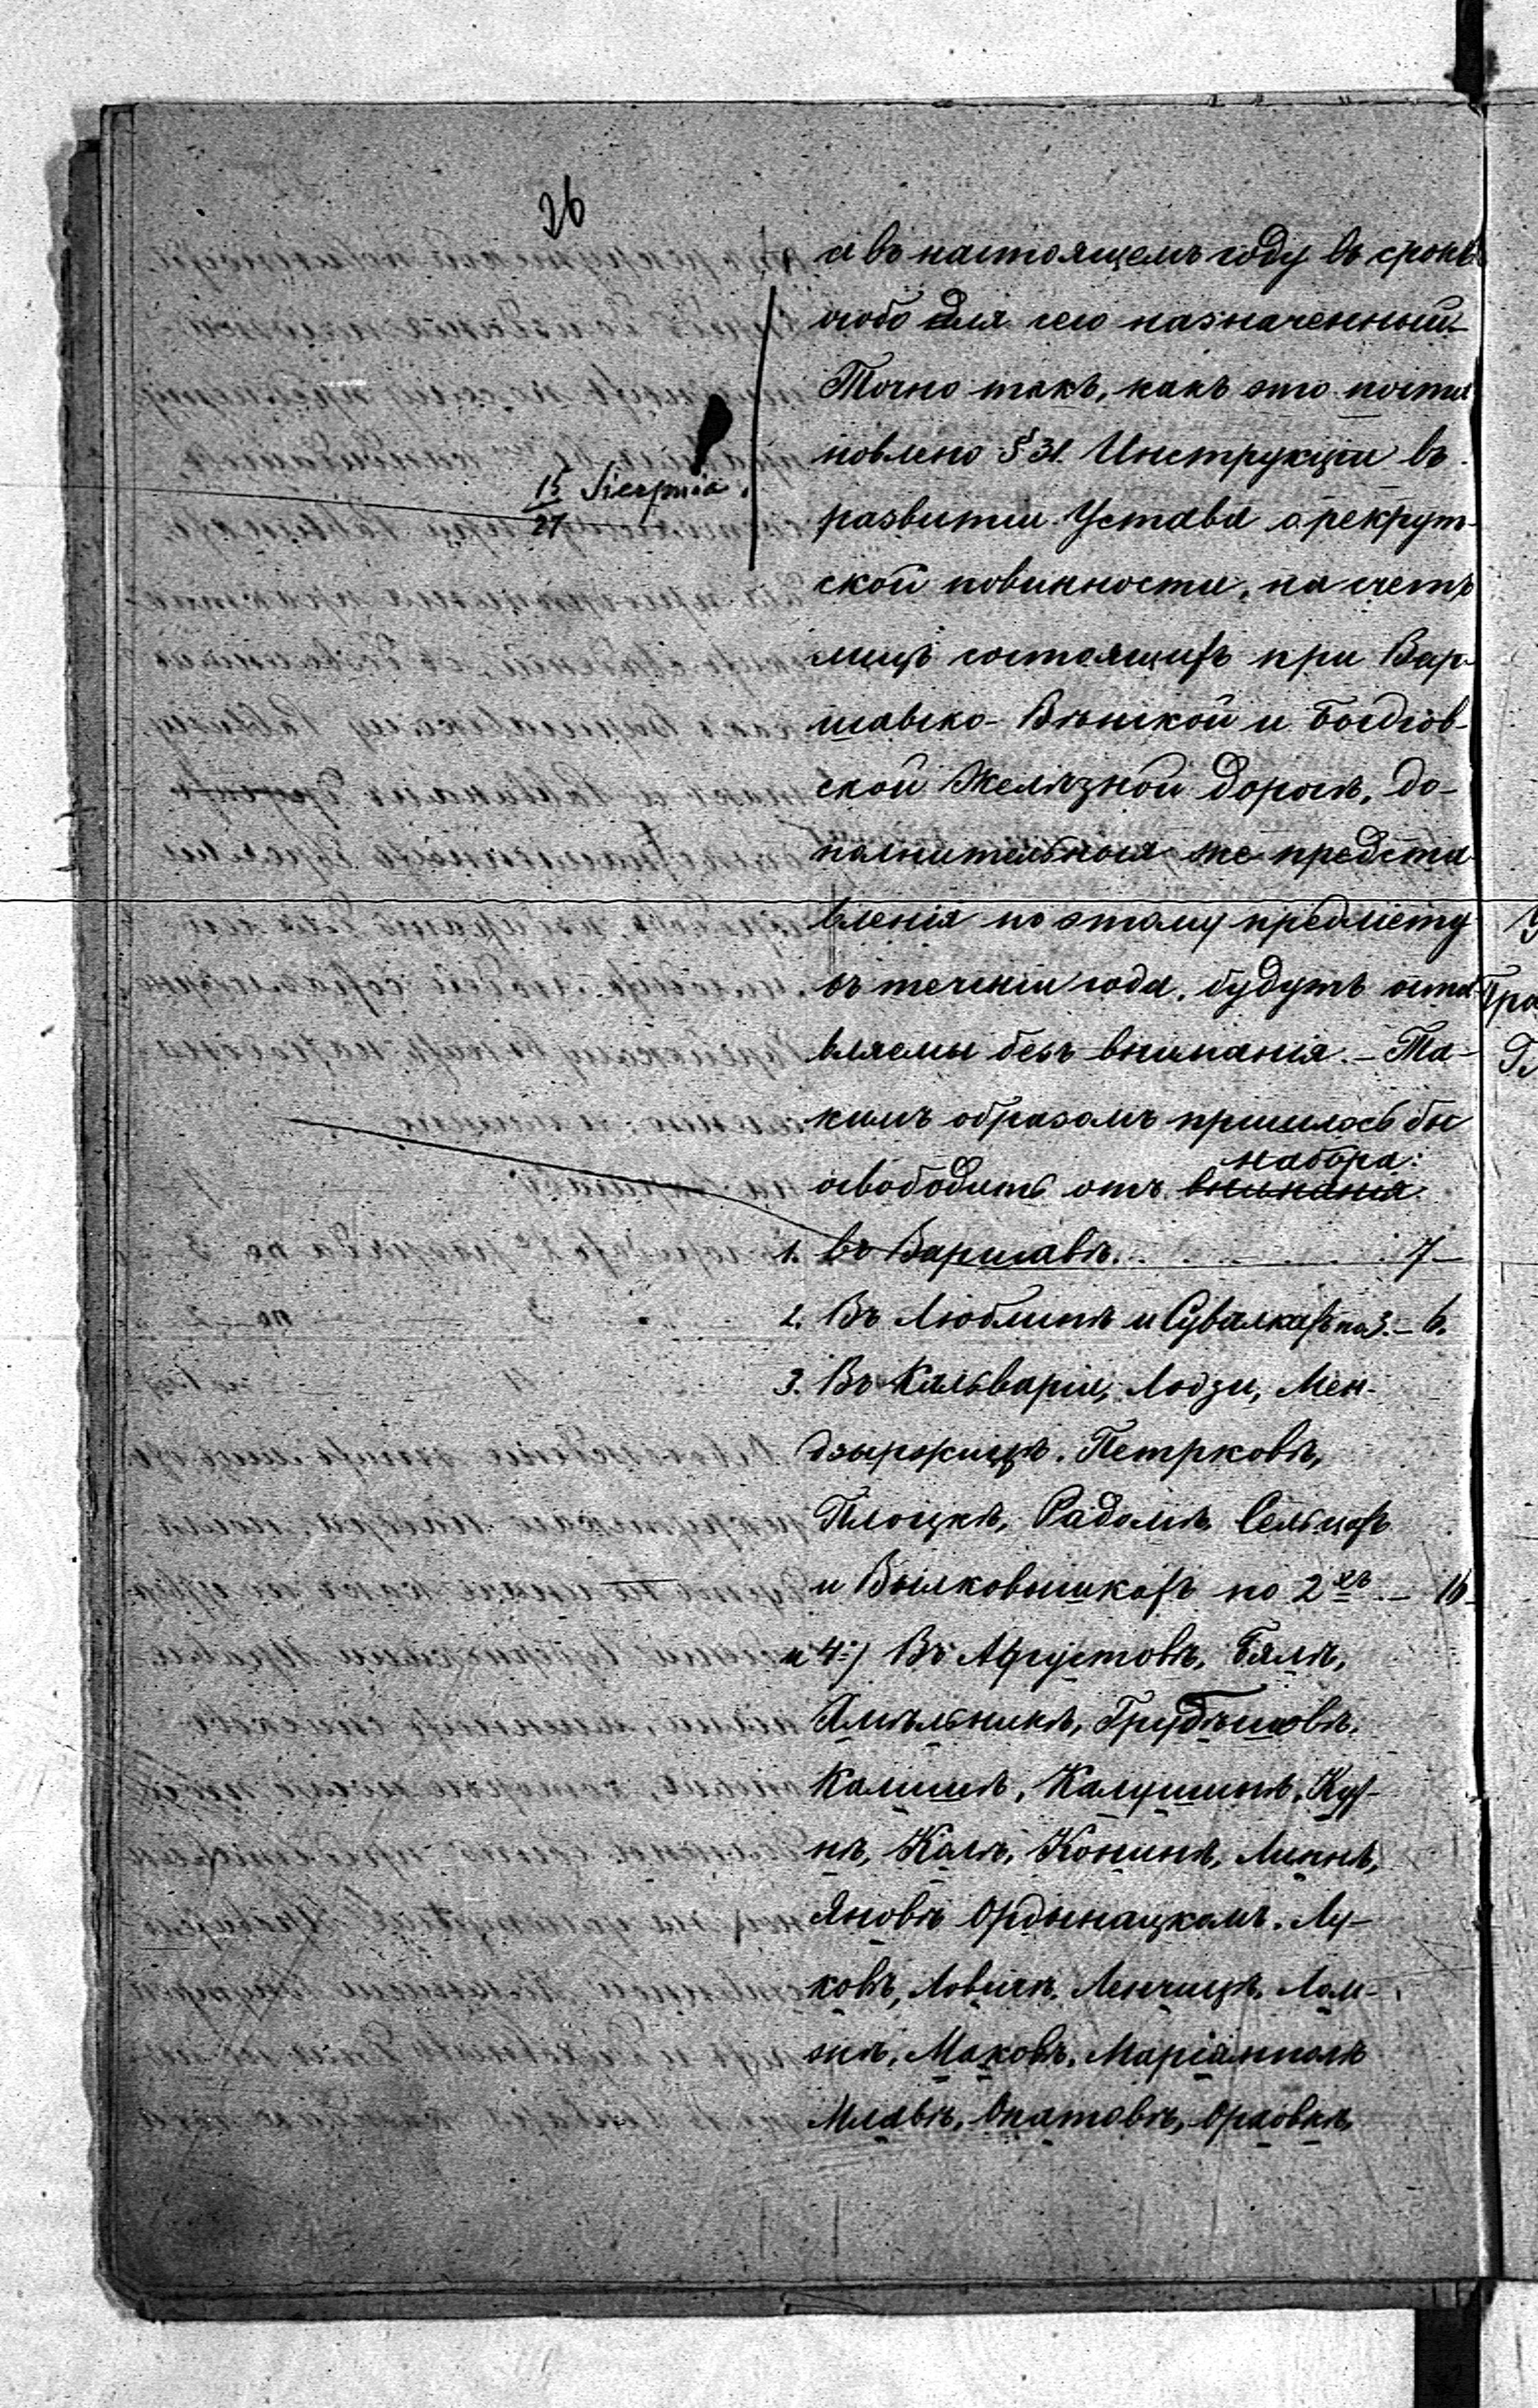 26
а въ настоящемъ году въ срокъ
особо для сего назначенный
Точно такъ, какъ это поста
новлено § 31. Инструкціи въ
15 Sierpnia.
27
развитіи Устава о рекрут-
ской повинности, на счетъ
лицъ состоящихъ при Вар-
шавско-Вѣнской и
ской Желѣзной дорогѣ, до-
полнительныя же предста
вленія по этому предмету
въ теченіи года, будутъ оста
вляемы безъ вниманія. - Та-
кимъ образомъ пришлось бы
набора:
освободить отъ вниманія
1. въ Варшавѣ. . . . 7 -
2. Въ Люблинѣ и Сувалкахъ по 3. - 6.
3. Въ Кальваріи, Лодзи, Мен-
дзыржицѣ, Петрковѣ,
Плоцкѣ, Радомѣ, Сельцахъ
и Вылковышкахъ по 2хъ - 16
и 4:) Въ Августовѣ, Бялѣ,
Хмѣльникѣ, Грубѣшовѣ,
Калишѣ, Калушинѣ, Кут-
нѣ, Колѣ, Конинѣ, Липнѣ,
Яновѣ Ордынацкомъ, Лу-
ковѣ, Ловичѣ, Ленчицѣ, Лом-
жѣ, Маковѣ, Маріамполѣ
Млавѣ, Опатовѣ, Орловѣ